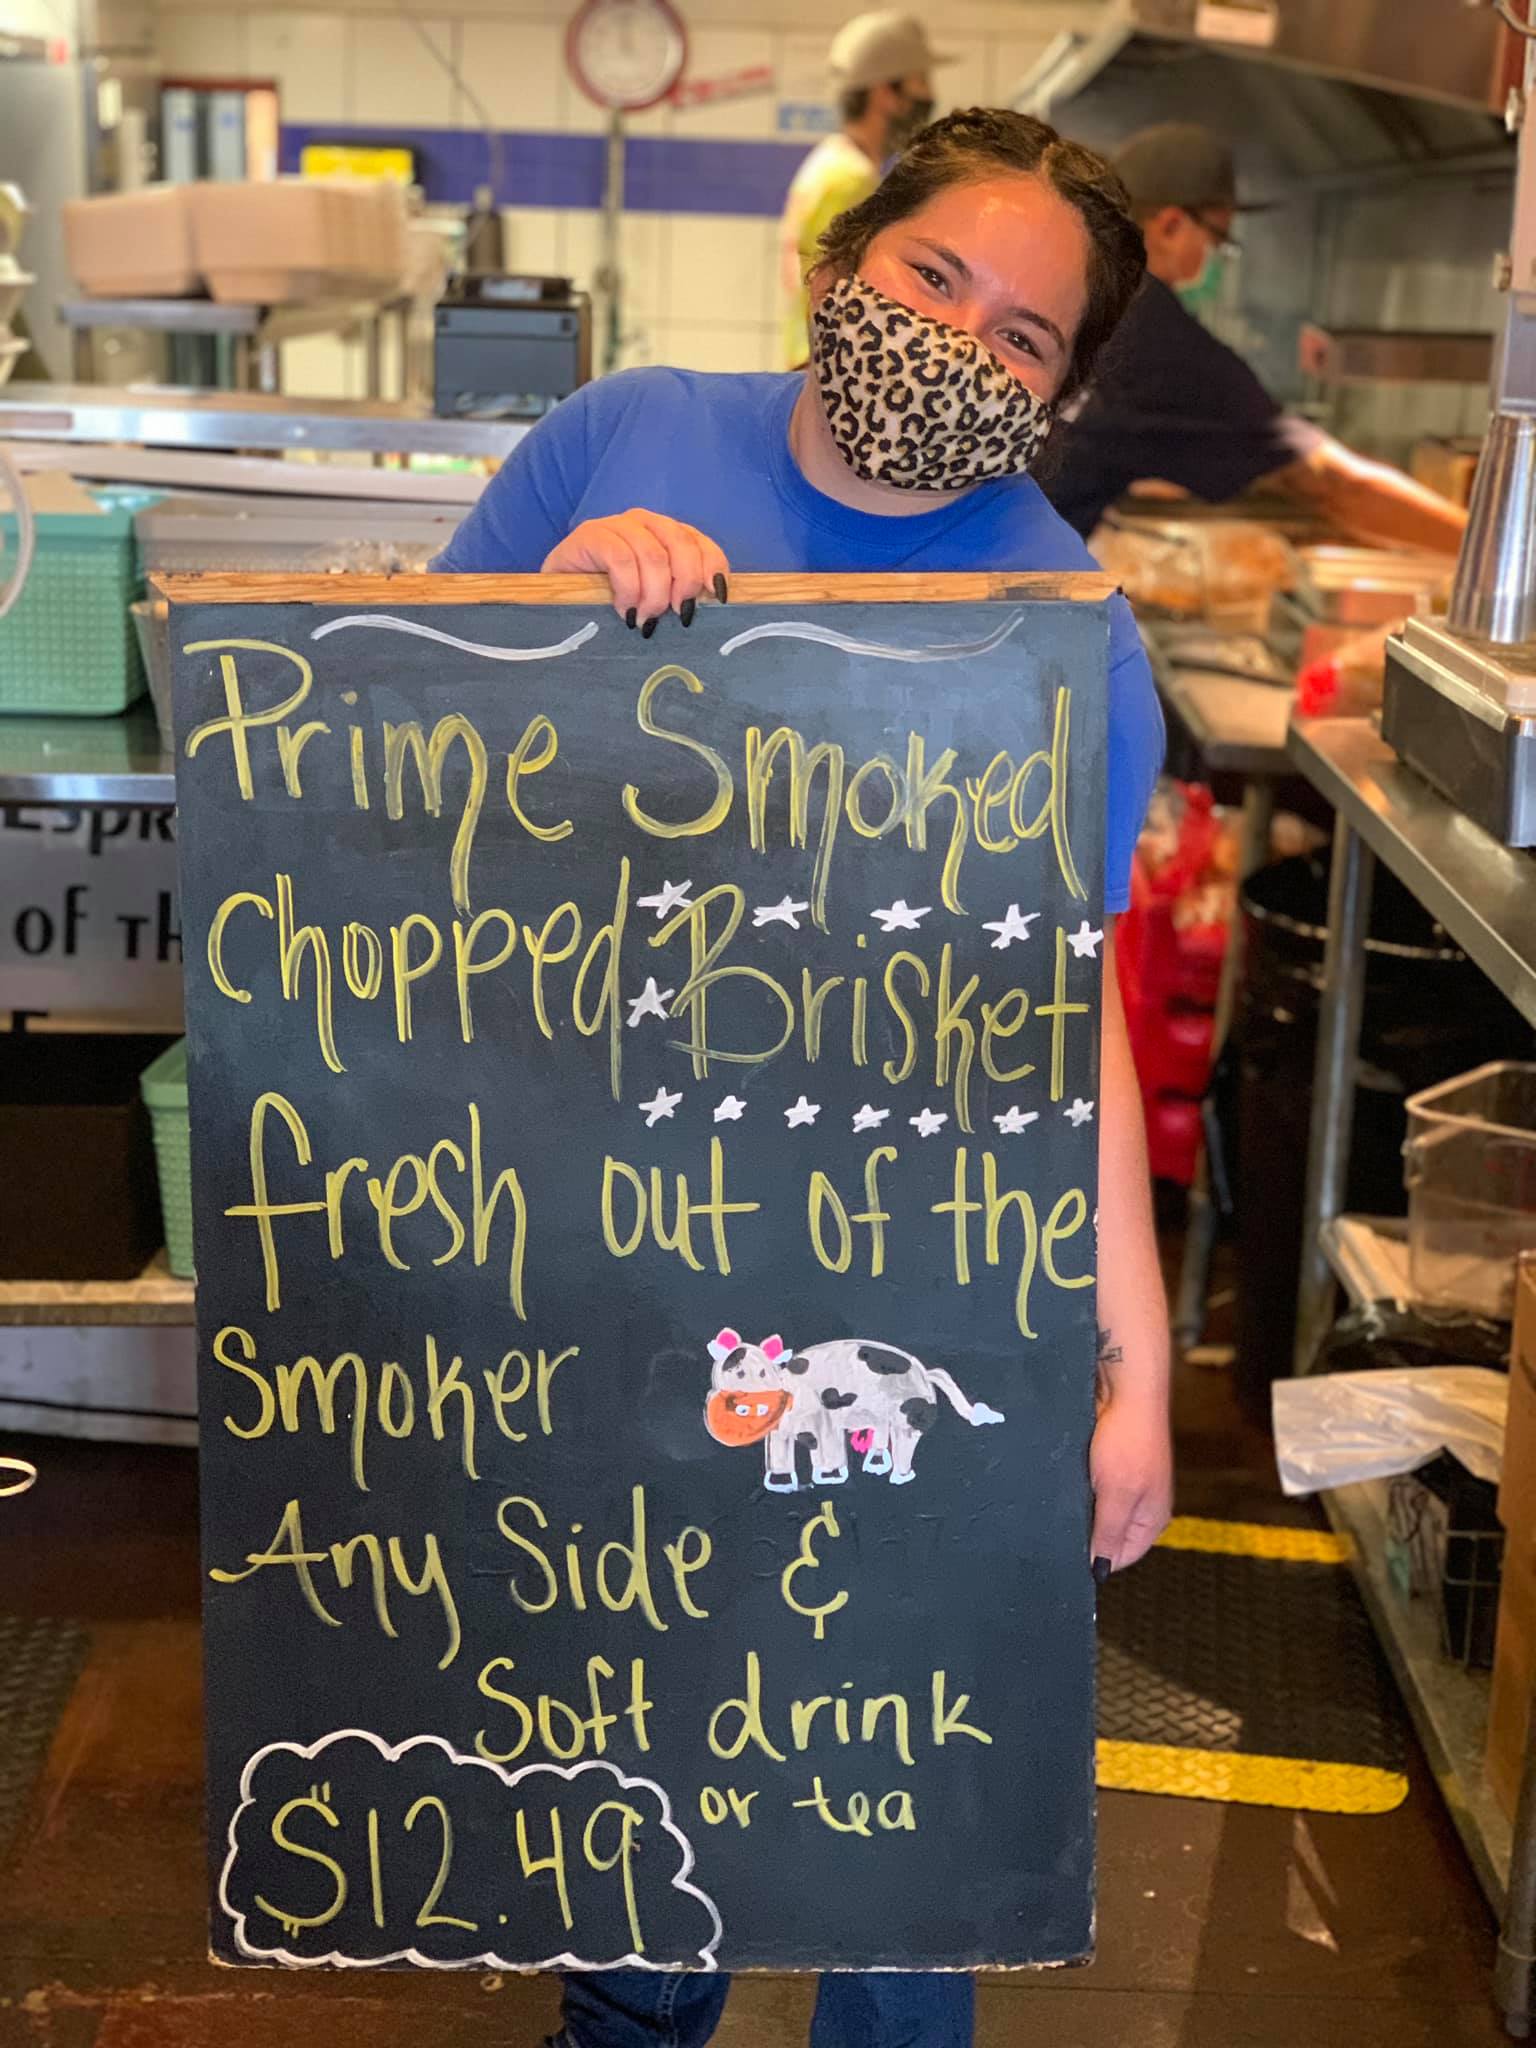 Prime Smoked
Chopped Brisket
fresh out of the
Smoker
Any Side &
Soft drink
or tea
$12.49
of